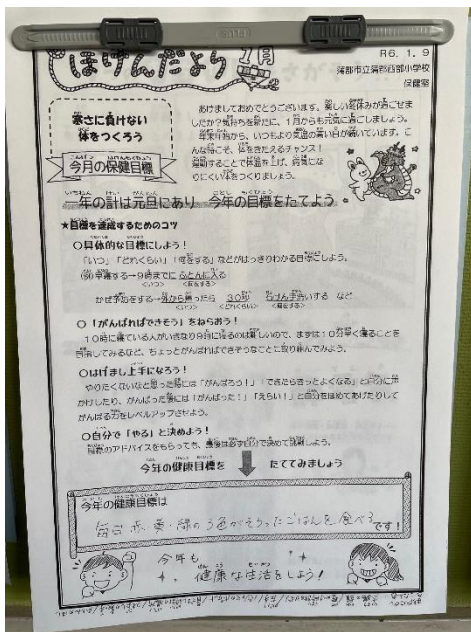 ほけんだより 1月
R6.1.9
蒲郡市立蒲郡西部小学校
保健室
寒さに負けない
体をつくろう
今月の保健目標
あけましておめでとうございます。楽しい冬休みが過ごせま
したか？気持ちを新たに、1月からも元気に過ごしましょう。
年末年始から、いつもより気温の高い日が続いています。こ
んな時こそ、体をきたえるチャンス！
運動することで体温を上げ、病気にな
りにくい体をつくりましょう。
一年の計は元旦にあり 今年の目標をたてよう
★目標を達成するためのコツ
○具体的な目標にしよう！
「いつ」「どれくらい」「何をする」などがはっきりわかる目標にしよう。
(例)早寝する→9時までに ふとんに入る
<いつ> <何をする>
かぜ予防をする→外から帰ったら 30秒 石けん手洗いする など
<いつ> <どれくらい> <何をする>
○「がんばればできそう」をねらおう！
10時に寝ている人がいきなり9時に寝るのは難しいので、まずは10分早く寝ることを
目指してみるなど、ちょっとがんばればできそうなことに取り組んでみよう。
○はげまし上手になろう！
やりたくないなと思った時には「がんばろう！」「できたらきっとよくなる」と自分に声
かけしたり、がんばった後には「がんばった！」「えらい！」と自分をほめてあげたりして
がんばる力をレベルアップさせよう。
○自分で「やる」と決めよう！
目標のアドバイスをもらっても、最後は必ず自分で決めて挑戦しよう。
今年の健康目標を たててみましょう
今年の健康目標は
毎日 赤・黄・緑の3色がそろったごはんを食べるです！
今年も
健康な生活をしよう！